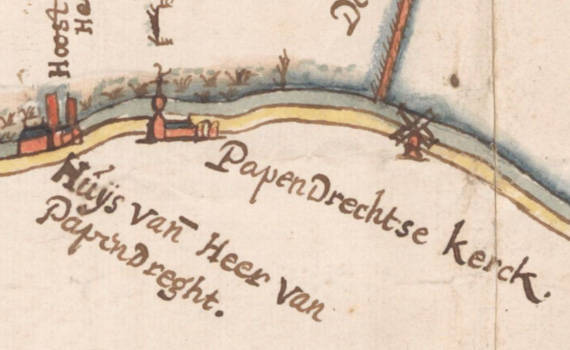 Hoost
He
De
PapenDrechtse kerck.
Huÿs van Heer van
PapenDreght.